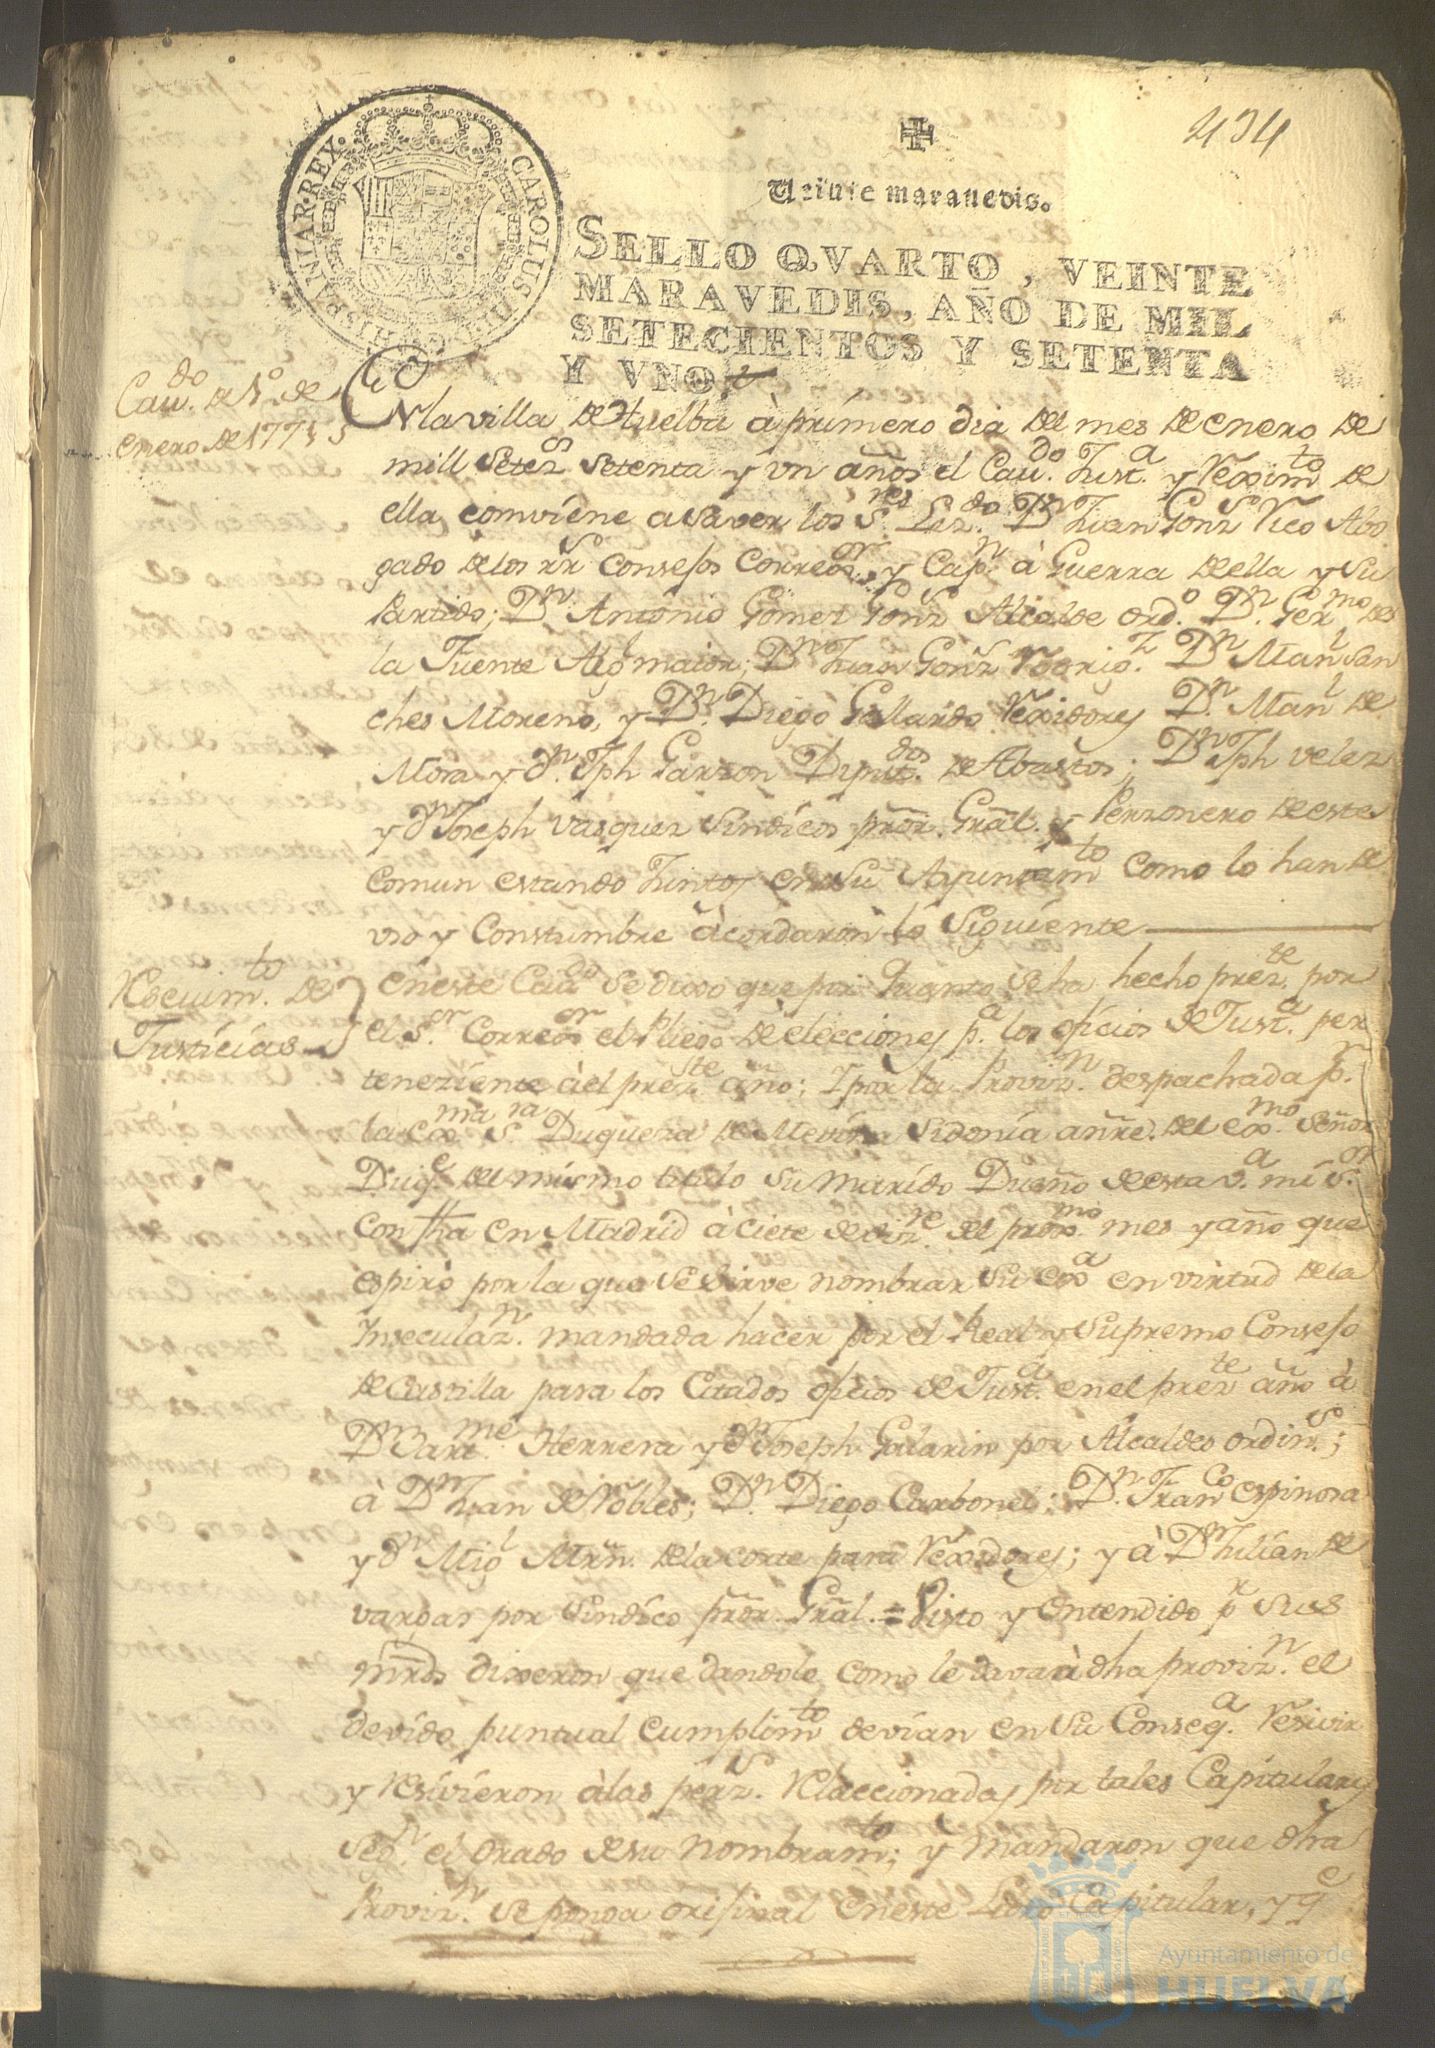 434
Veinte maravedis.
CAROLUS III D G HISPANIAR REX
SELLO QVARTO, VEINTE
MARAVEDIS, AÑO DE MIL
SETECIENTOS Y SETENTA
Y VNO.
Cau.do de 1.o de
enero de 1771
En la villa de Huelba à primero dia del mes de enero de
mill Setez.s Setenta y vn años el Cau.do Just.a y Reximto de
ella comviene a saver los S.res Lez.do D.n Juan Gonz.s Rico Abo
gado de los r.s Consejos Correg.or y Cap.n à Guerra de ella y su
Partido; D.n Antonio Gomez Gonz.s Alcalde Ord.o D.n Germo de
la Fuente Alg.l maior; D.n Juan Gonz.z Rodrig.z D.n Man.l San
ches Moreno, y D.n Diego Gallardo Rexidores D.n Man.l de
Mora y d.n Jph Garzon Diput.dos de Abastos; D.n Jph velez
y d.n Joseph Vasquez Sindicos prõr. Grãl. y Perzonero de este
comun estando Juntos en su Ayuntam.to como lo han de
vso y Constumbre àcordaron lo Siguiente
Reseuim.to de
Justicias
en este Cau.do Se dixo que por quanto se ha hecho prez.te por
el S.or Correg.or el Pliego de elecciones p.a los oficios de Just.a per
teneziente àel prez.te año; Y por la Proviz.n despachada p.r
la ex.ma S.ra Duqueza de Medina Sidonia en nre. del ex.mo Señor
Duq.e del mismo titulo su marido Dueño de esta v.a mi S.or
con fha en Madrid à ciete de diz.re del prox.mo mes y año que
espirò por la que se sirve nombrar su ex.a en virtud de la
Inseculaz.n mandada hacer por el Real y Supremo Consejo
de Castilla para los Citados oficios de Just.a en el prez.te año à
D.n Bart.me Herrera y d.n Joseph Galarin por Alcaldes ordin.s;
à D.n Juan de Robles; D.n Diego Carbonel; D.n Fran.co espinosa
y d.n Mig.l Mrñ. de la corte para Rexidores; y à D.n Julián de
vargas por Sindico prõr. Grãl. = Visto y entendido p.r sus
mrds dixeron que dandole como le davan à dha proviz.n el
devido puntual cumplim.to devian en su Conseq.a Resivir
y Resivieron àlas perz.s Relaccionadas por tales Capitulares
Seg.n el Grado de su nombram.to; y mandaron que dha
Proviz.n se ponga original en este Libro Capitular, y q.e
Ayuntamiento de
HUELVA